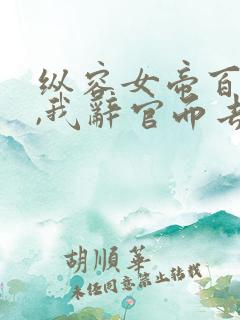 纵容女帝百
,我辭官而去
胡順華
未经同意禁止转载